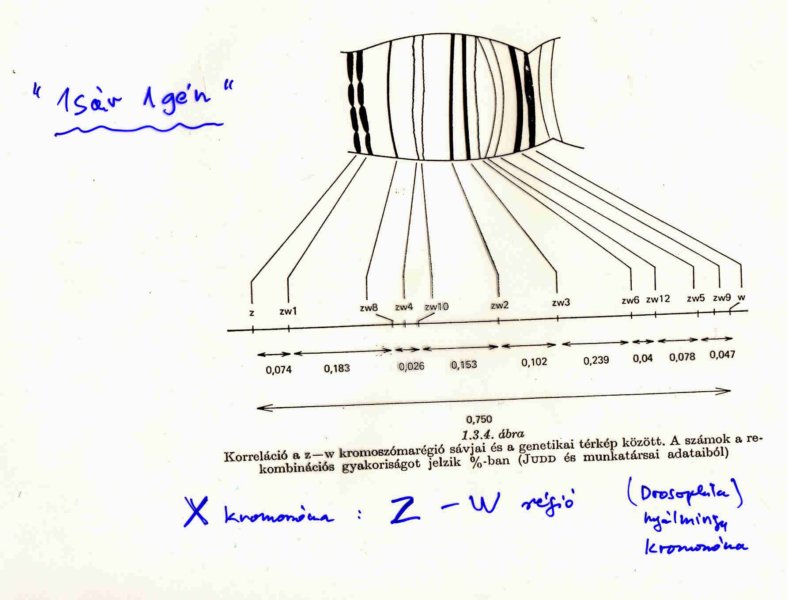 " 1 sáv 1 gén "
z zw1 zw8 zw4 zw10 zw2 zw3 zw6 zw12 zw5 zw9 w
0,074 0,183 0,026 0,153 0,102 0,239 0,04 0,078 0,047
0,750
1.3.4. ábra
Korreláció a z—w kromoszómarégió sávjai és a genetikai térkép között. A számok a re-
kombinációs gyakoriságot jelzik %-ban (JUDD és munkatársai adataiból)
X kromoszóma : Z – W régió
(Drosophila)
nyálmirigy
kromoszóma